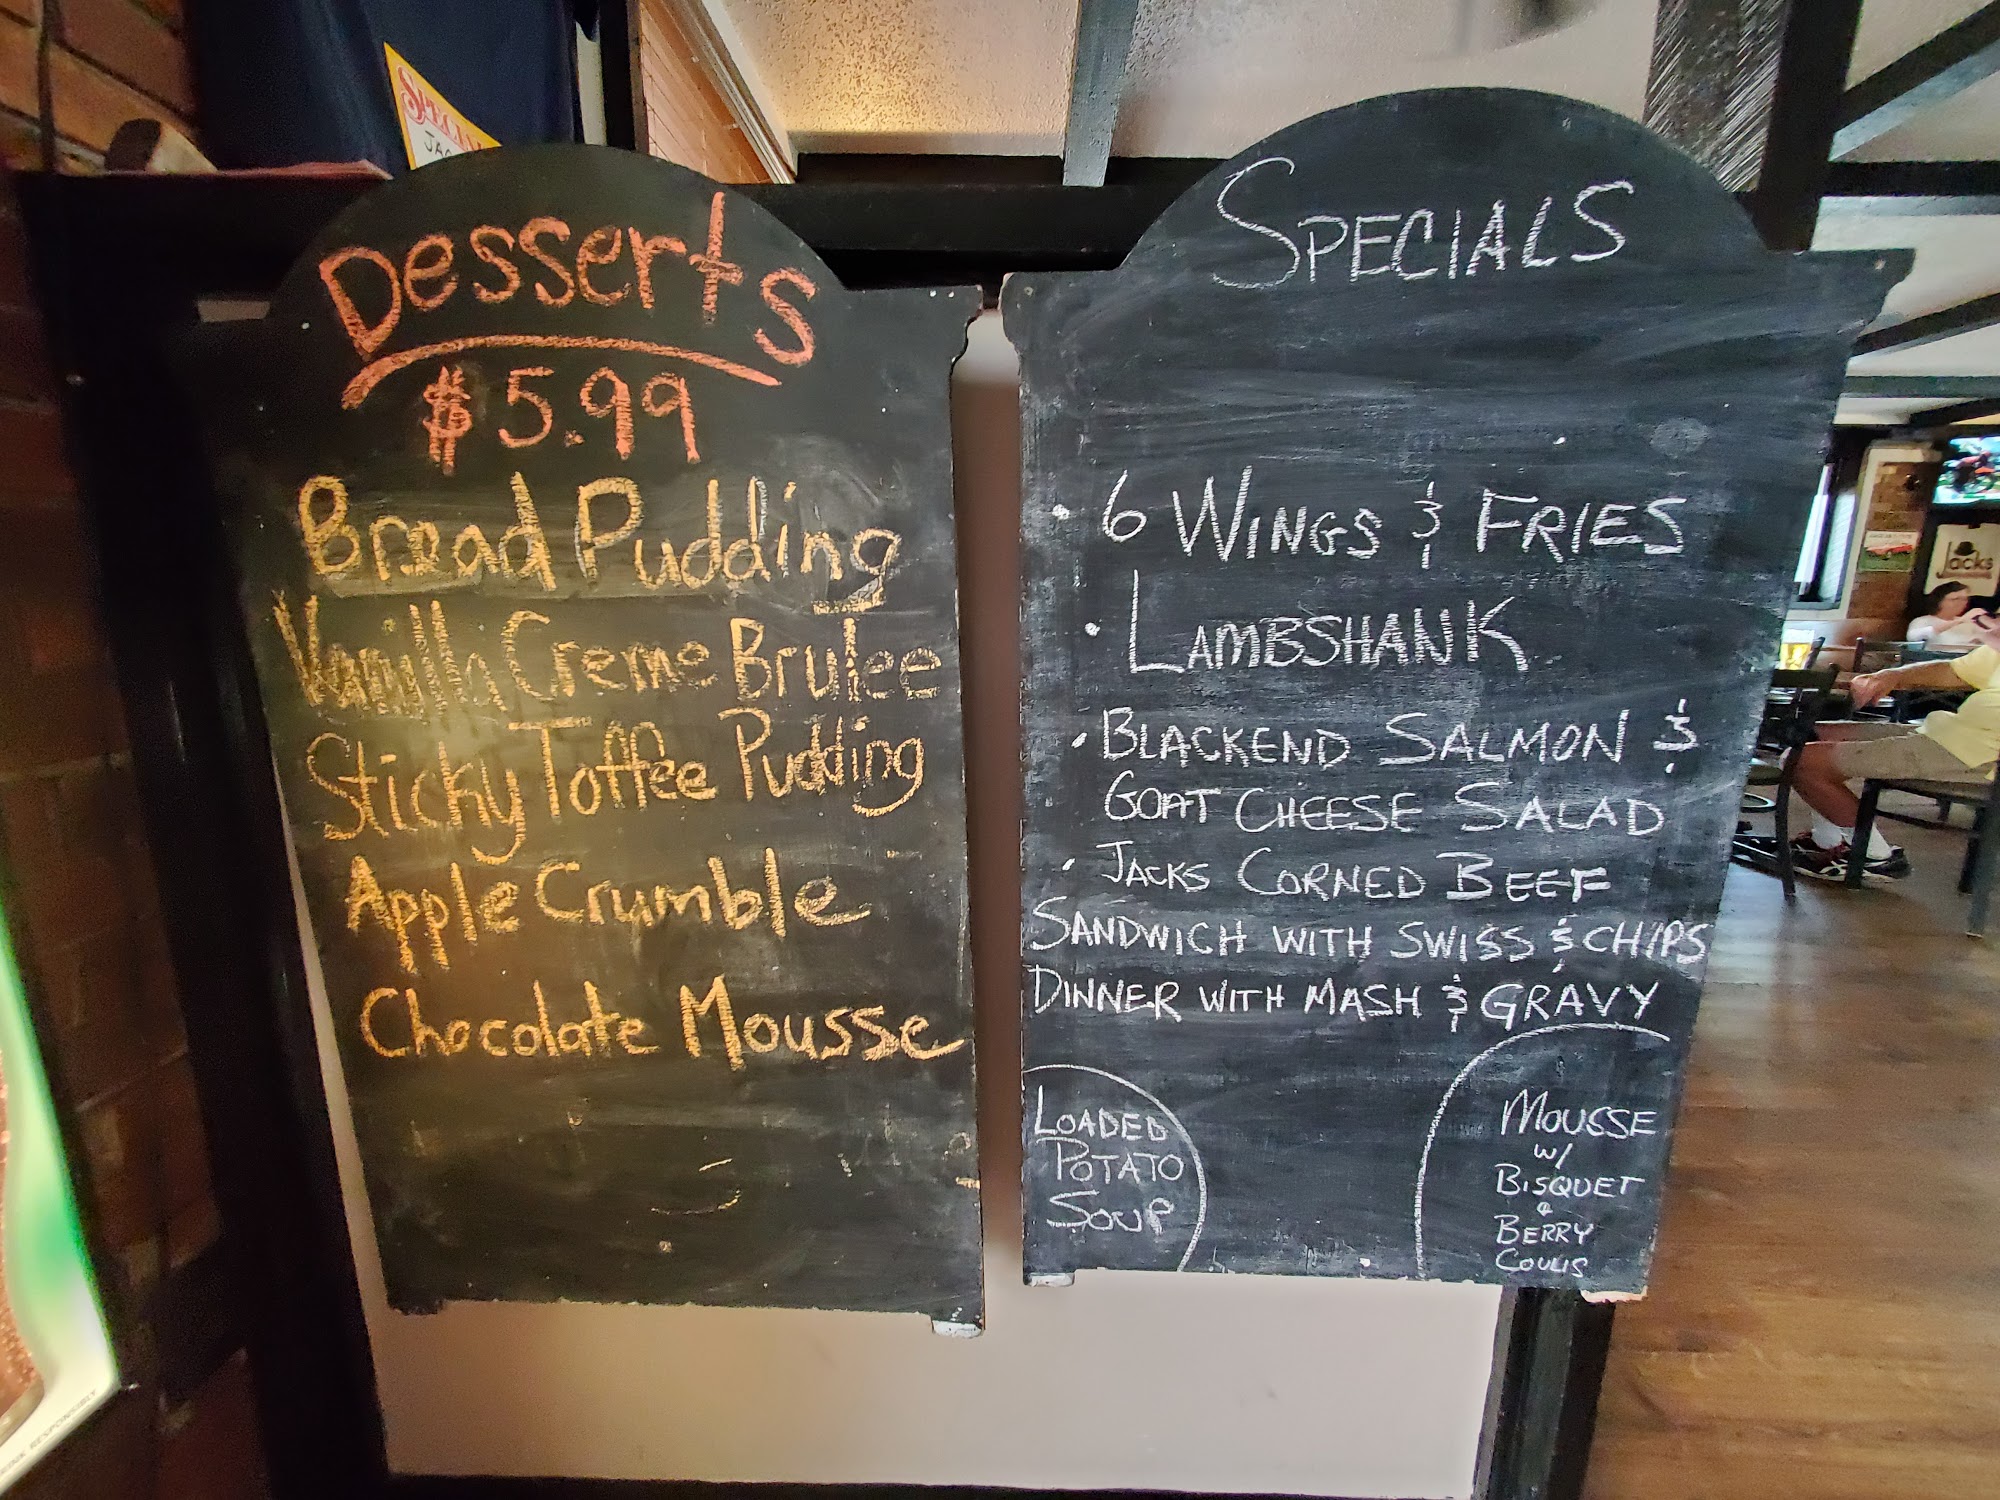 Desserts
$5.99
Bread Pudding
Vanilla Creme Brulee
Sticky Toffee Pudding
Apple Crumble
Chocolate Mousse
SPECIALS
• 6 WINGS & FRIES
• LAMBSHANK
• BLACKEND SALMON &
GOAT CHEESE SALAD
• JACKS CORNED BEEF
SANDWICH WITH SWISS & CHIPS
DINNER WITH MASH & GRAVY
LOADED
POTATO
SOUP
MOUSSE
W/
BISQUET
&
BERRY
COULIS
Jacks
RESPONSIBLY